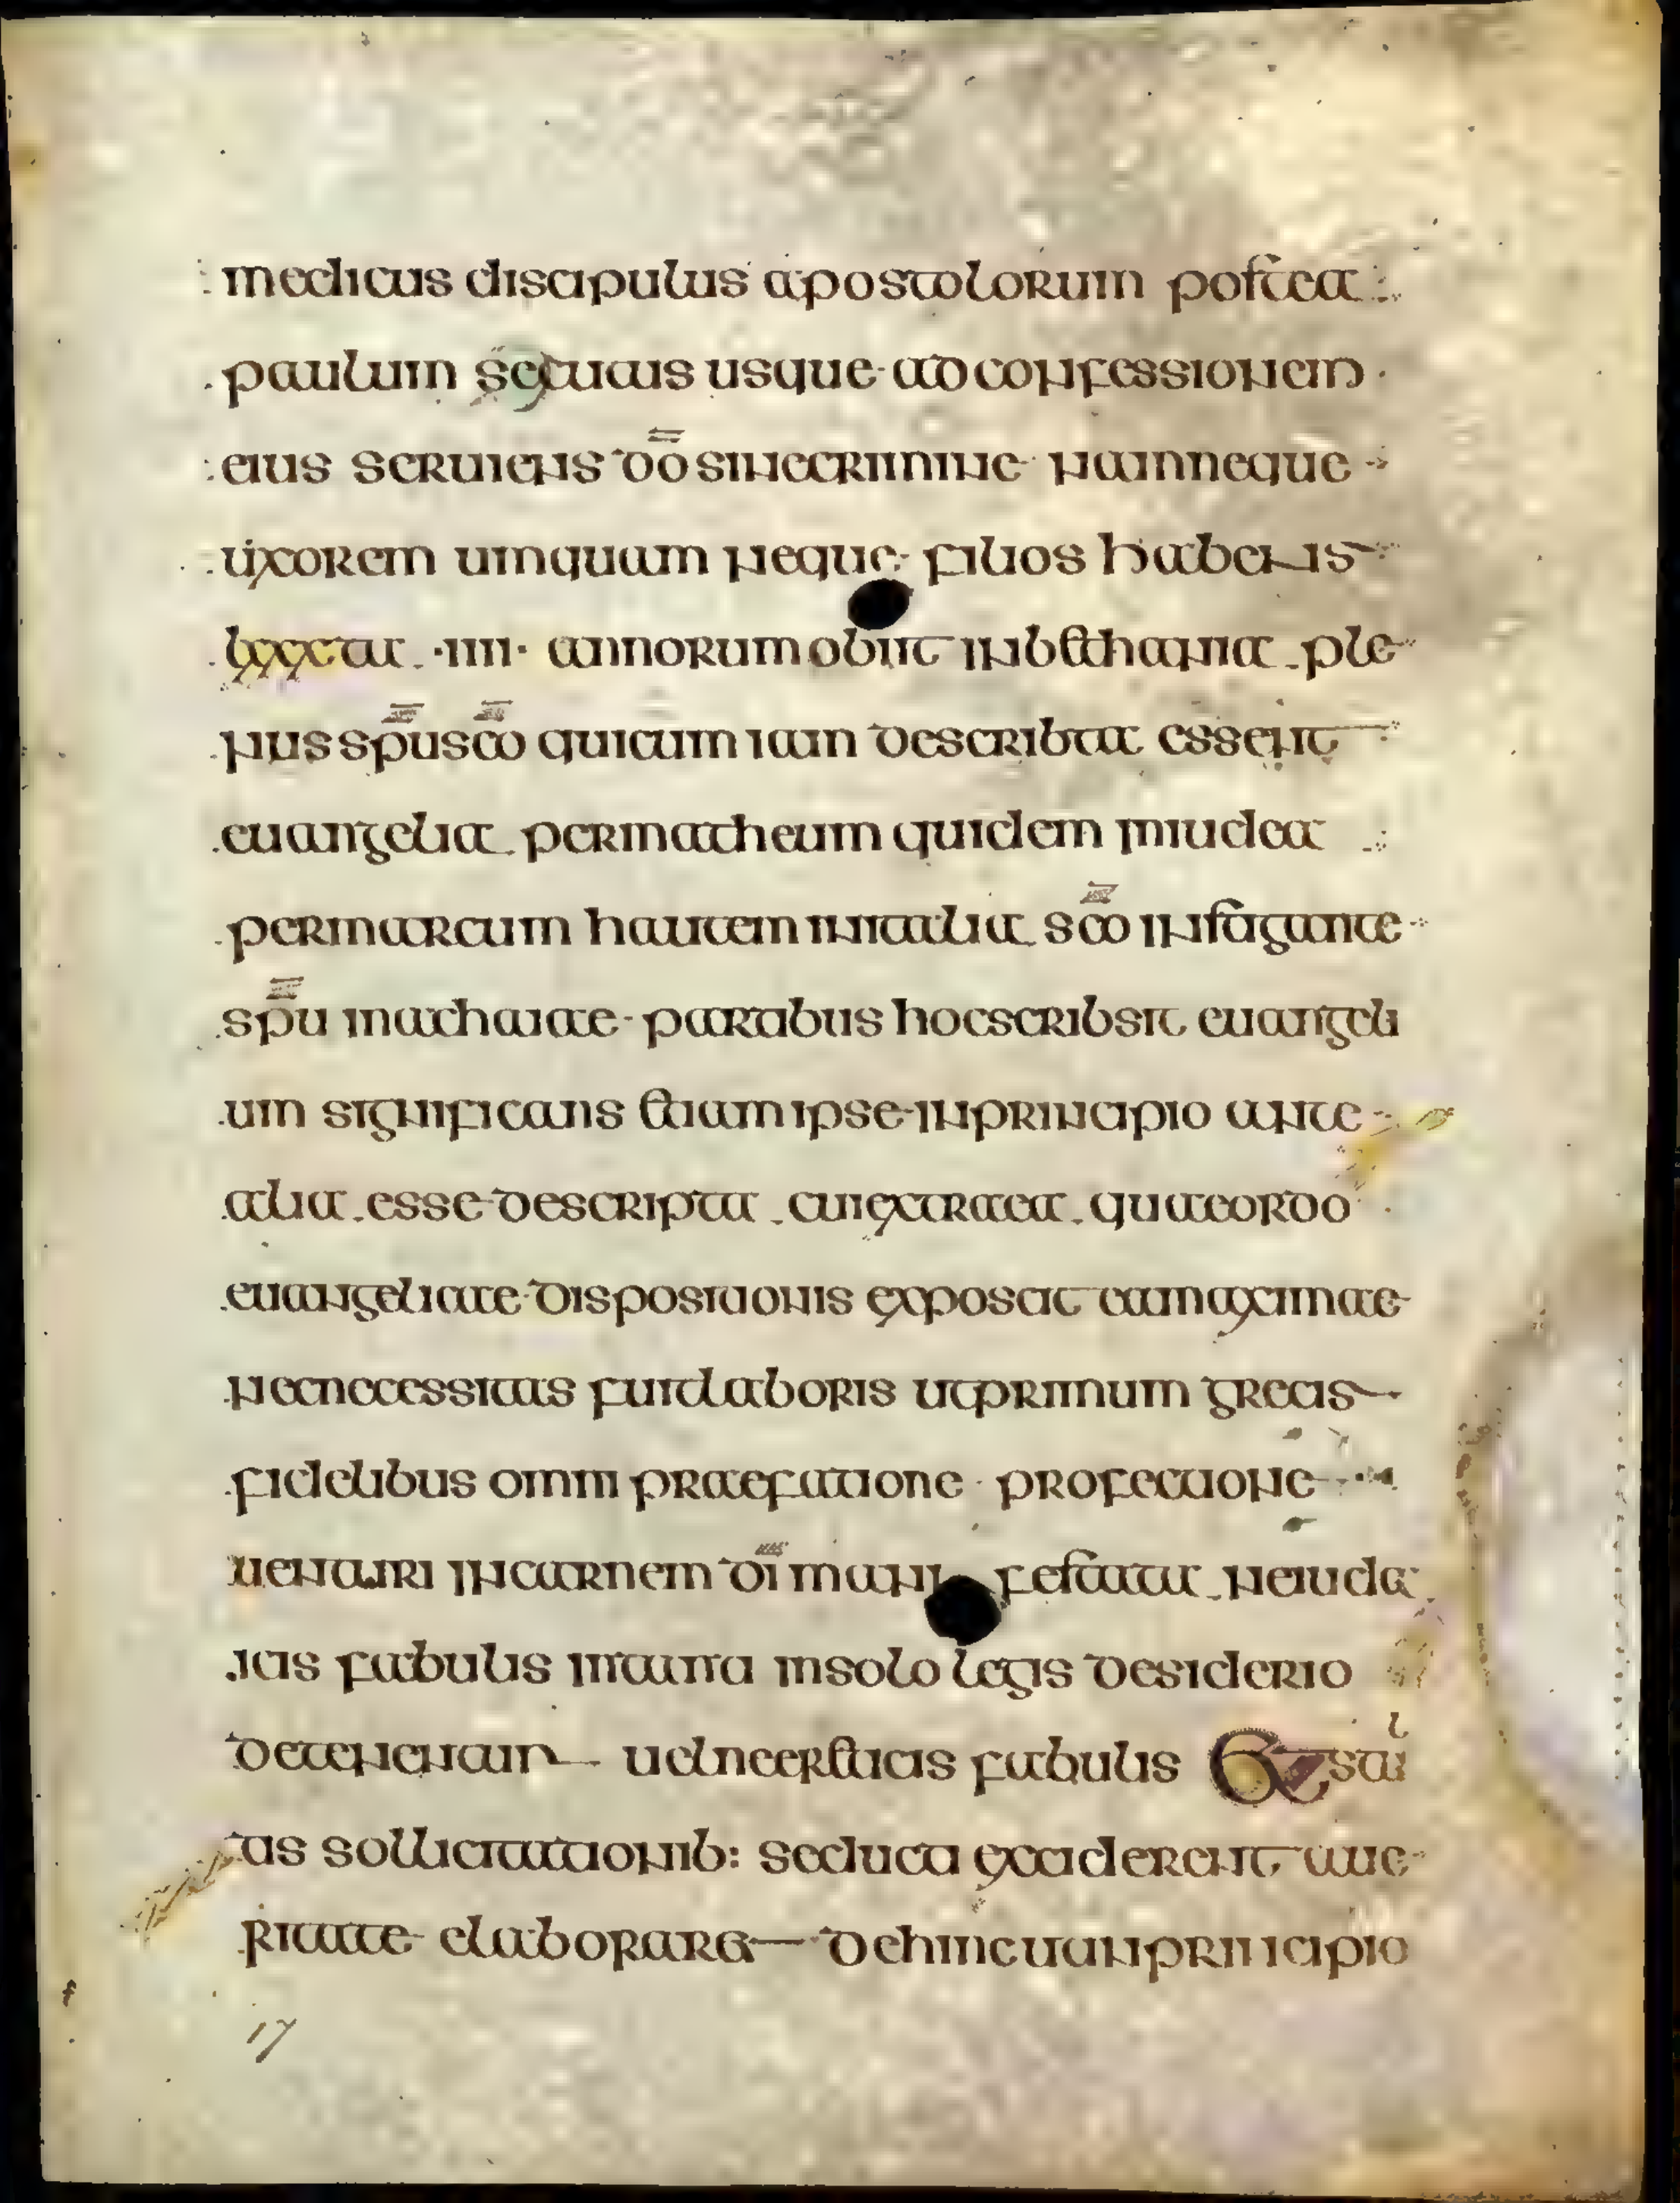 medicus discipulus apostolorum postea
paulum secutus usque ad confessionem
eius seruiens dō sineccrimine namneque
uxorem umquam neque filios habens
lxxta .iiii. annorum obiit inbethania ple
nus sp̄u sc̄o quicum iam describta essent
euangelia permatheum quidem iniudea
permarcum hautem initalia sc̄o instigante
sp̄u inachaiae partibus hocscribsit euangeli
um significans etiam ipse inprincipio ante
alia esse descripta cuiextraea quaeordo
euangeliace dispositionis exposcit eamaximae
necnecessitas fuitlaboris utprimum grecis
fidelibus omni praefatione profectione
uenturi incarnem dī̄ manifestata neiuda
icis fabulis intenti insolo legis desiderio
detenerentur uelnecereticis fabulis et stul
tis sollicitationib: seducti exciderent aue
ritate elaborare dehinc utinprincipio
17